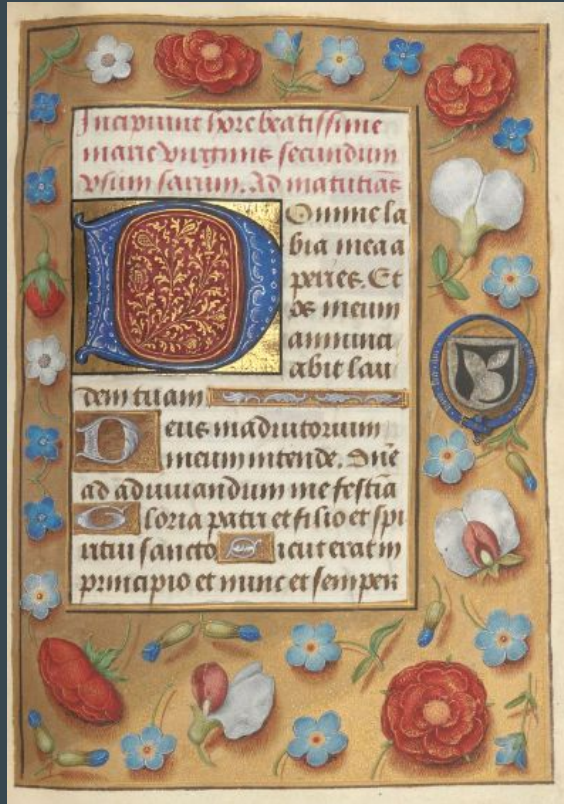 Incipiunt hore beatissime
marie virginis secundum
vsum sarum. Ad matutīas
Domine la
bia mea a
peries. Et
os meum
annunci
abit lau
dem tuam
Deus in adiutorium
meum intende. Dn̄e
ad adiuuandum me festīa
Gloria patri et filio et spi
ritui sancto Sicut erat in
principio et nunc et semper